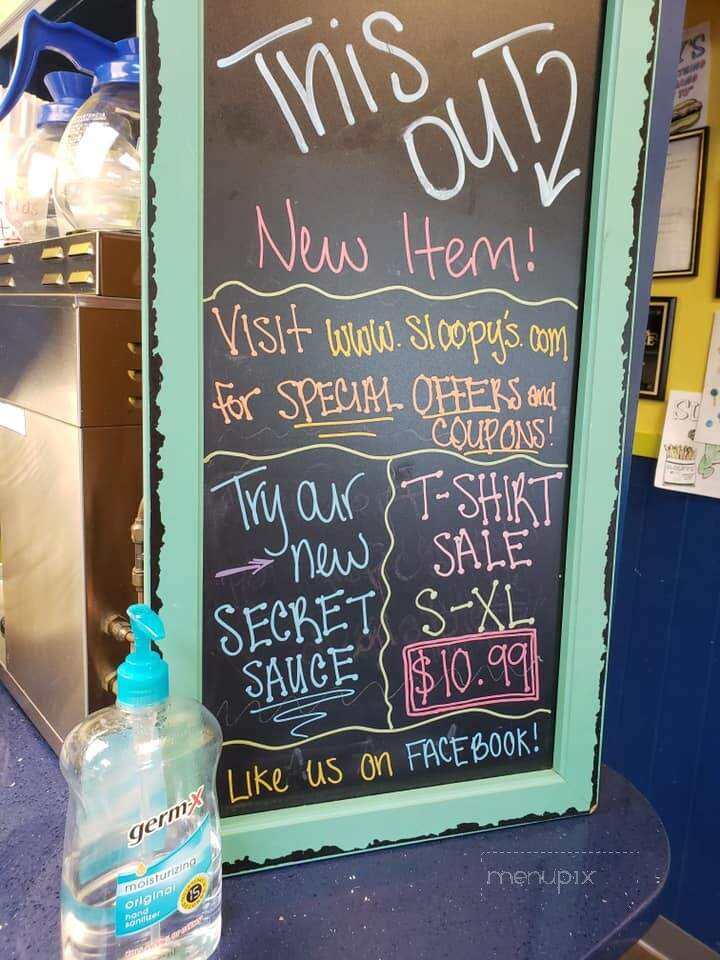 THIS
OUT
New Item!
VISIT www.sloopy's.com
for SPECIAL OFFERS and
COUPONS!
Try our
new
SECRET
SAUCE
T-SHIRT
SALE
S-XL
$10.99
LIKE US ON FACEBOOK!
germ-x
moisturizing
original
hand
sanitizer
15
menupix